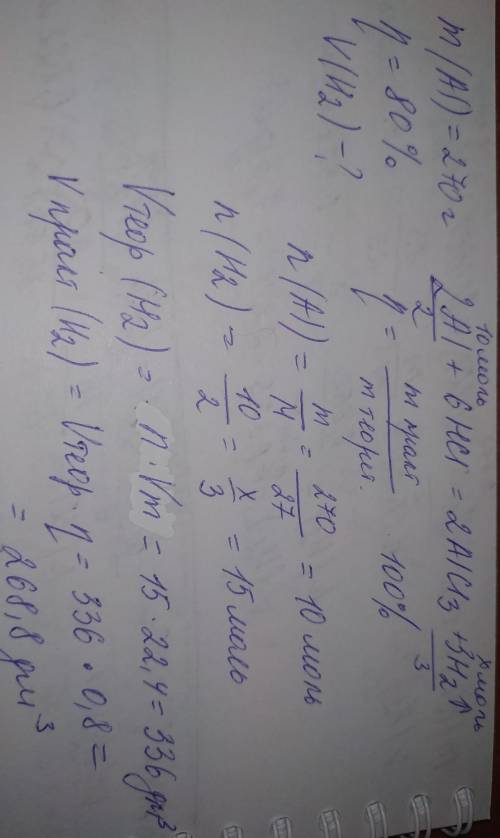 m(Al) = 270 г
η = 80%
V(H₂) - ?
10 моль х моль
2Al + 6HCl = 2AlCl₃ + 3H₂↑
2 3
η = m практ / m теорет. · 100%
n(Al) = m/M = 270/27 = 10 моль
n(H₂) = 10/2 = x/3 = 15 моль
Vтеор (H₂) = n · Vm = 15 · 22,4 = 336 дм³
Vпракт (H₂) = Vтеор · η = 336 · 0,8 =
= 268,8 дм³